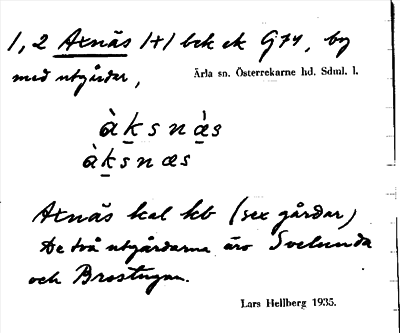 1, 2 Axnäs 1+1 bck ek G74, by
med utgårdar,
Ärla sn. Österrekarne hd. Sdml. l.
àksnæ̀s
àksnæs
Axnäs kal kb (sex gårdar)
De två utgårdarna äro Svelunda
och Brostugan.
Lars Hellberg 1935.